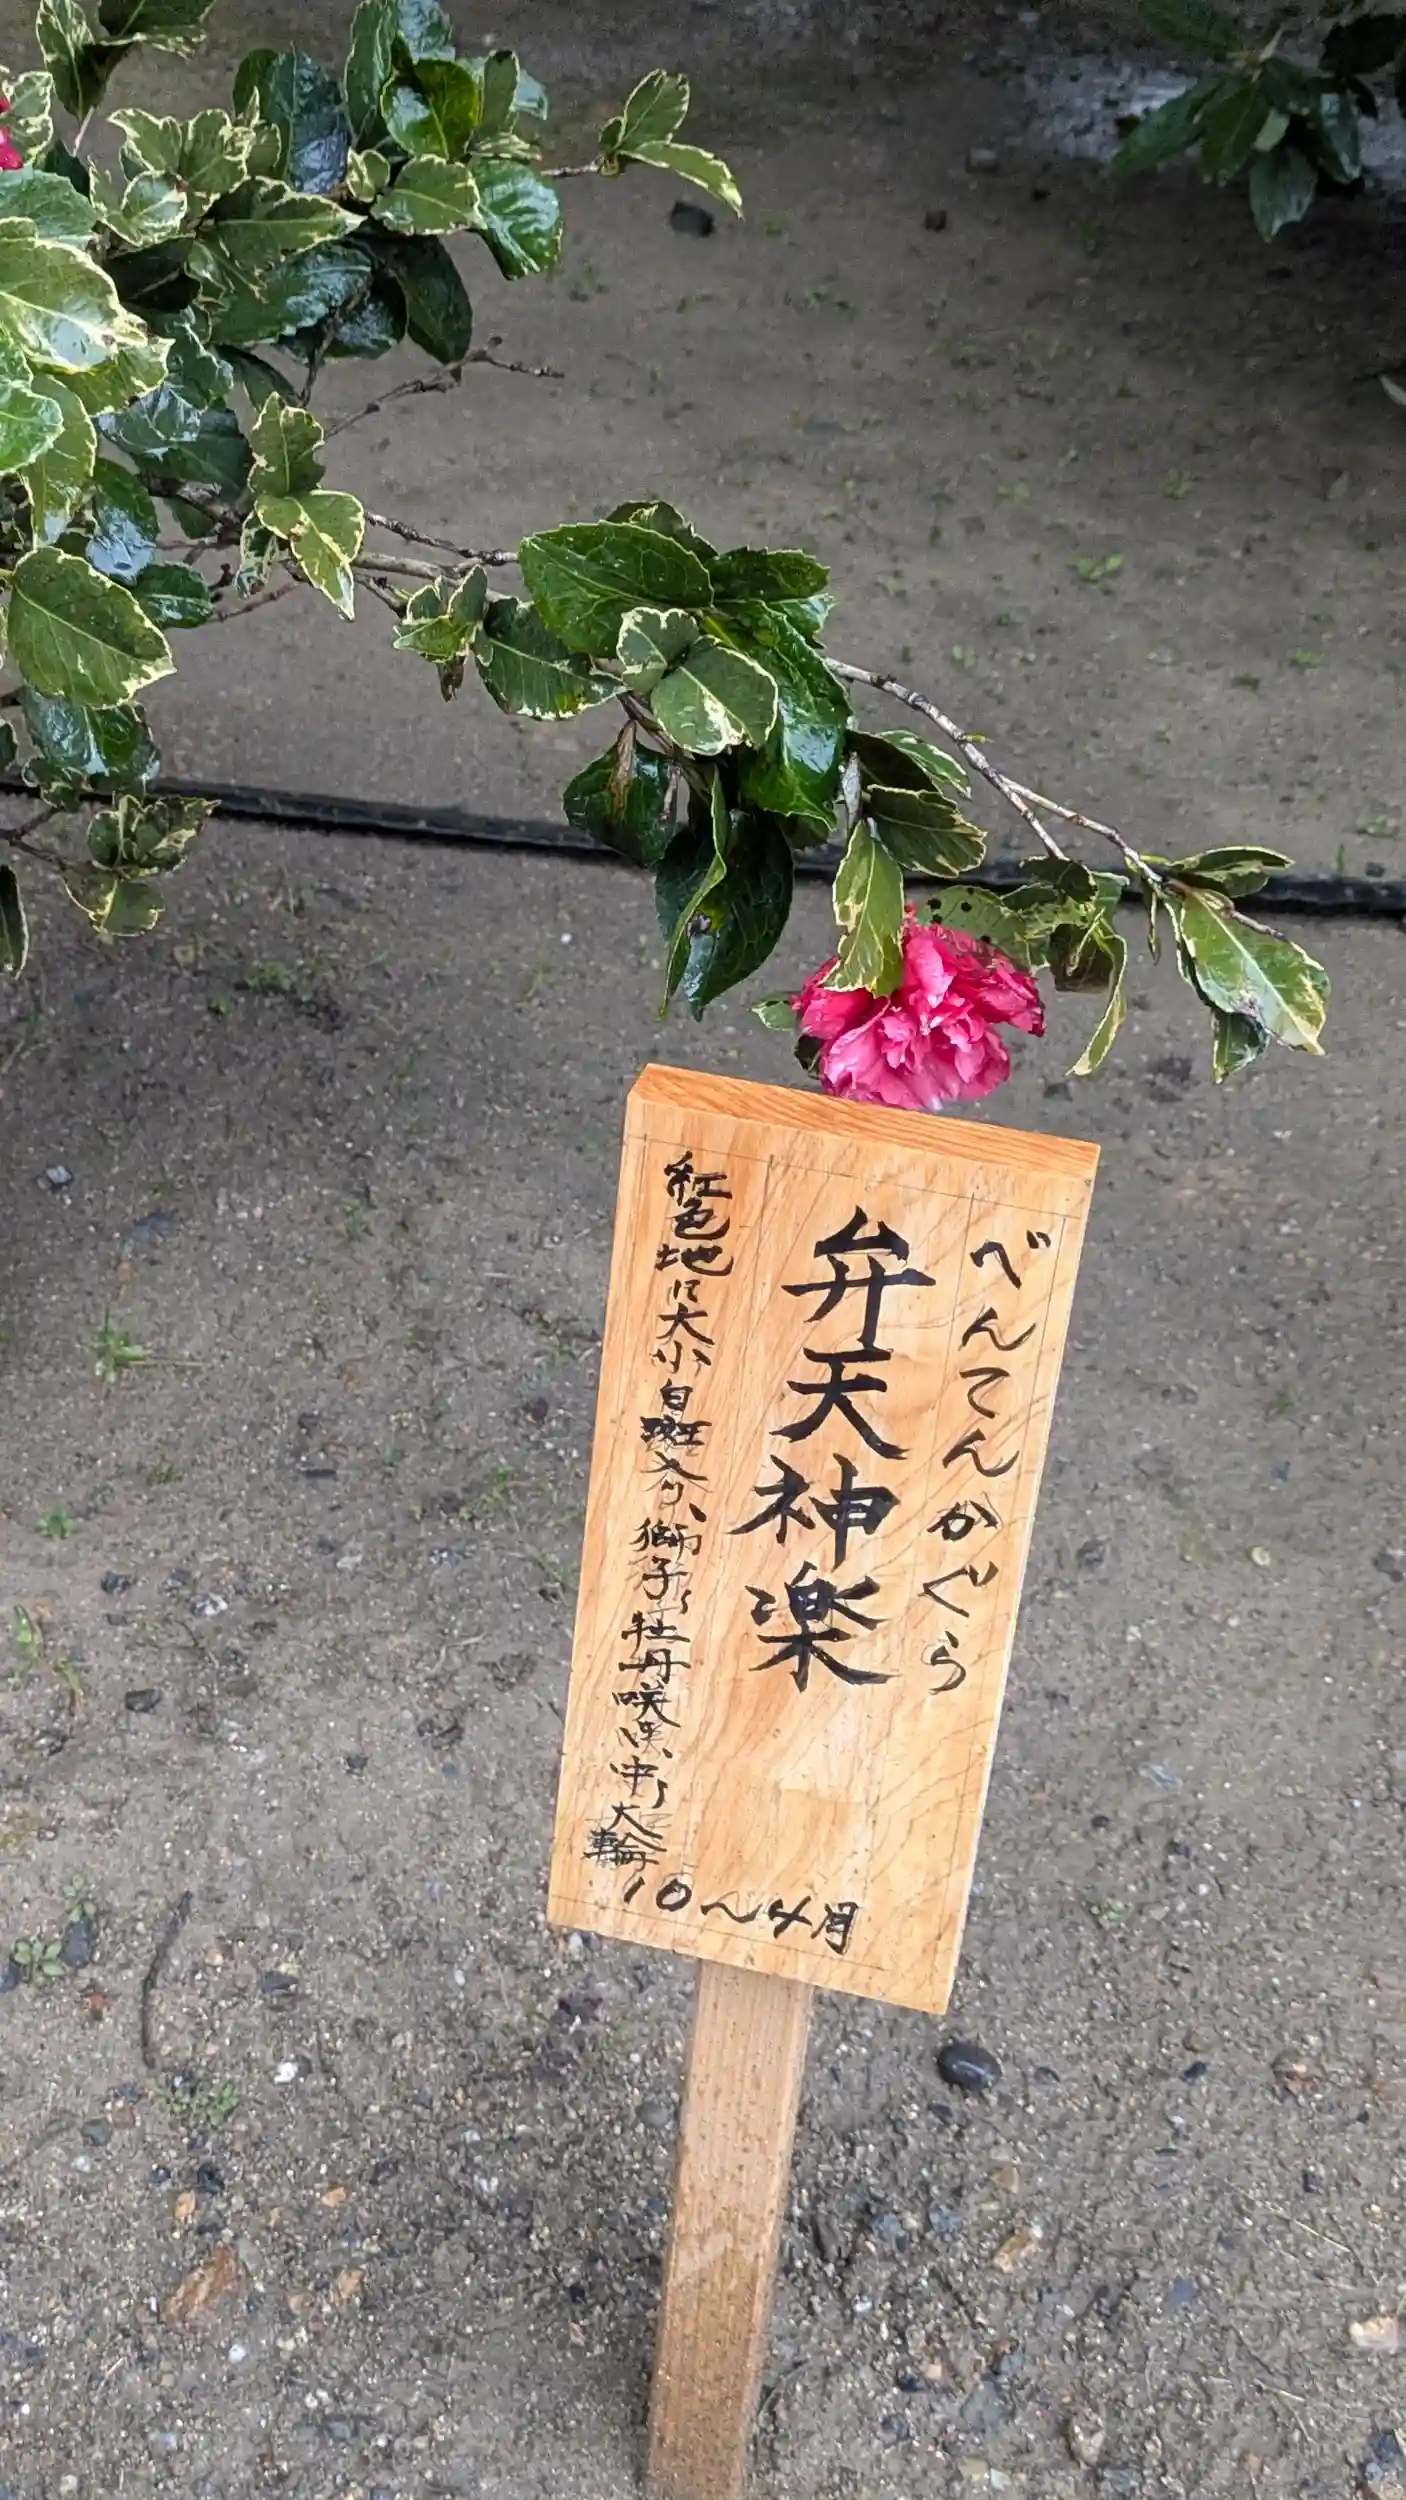 べんてんかぐら
弁天神楽
紅色地に大小白斑入り、獅子〜牡丹咲、中〜大輪
10〜4月